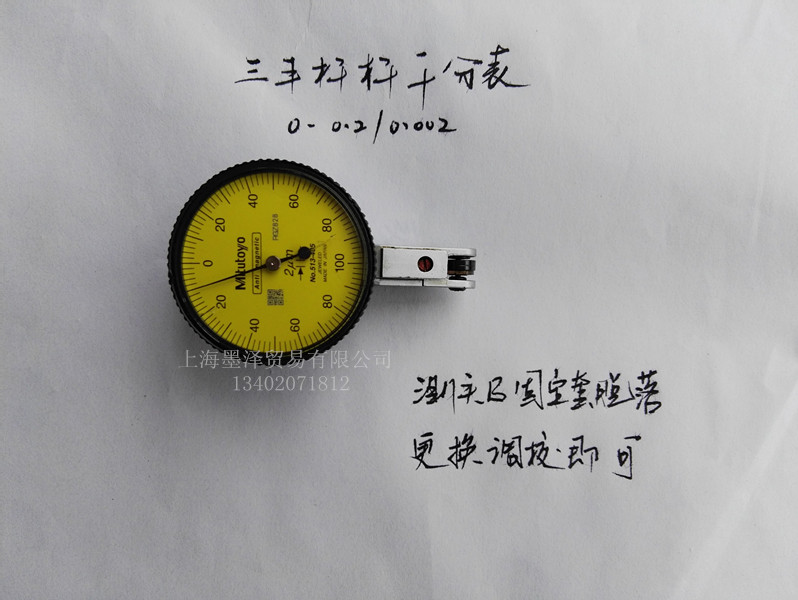 三丰杆杆千分表
0-0.2/0.002
20
40
60
80
100
80
60
40
20
0
Mitutoyo
Anti-Magnetic
2μm
No.513-405
JEWELED
MADE IN JAPAN
上海墨泽贸易有限公司
13402071812
测头及固定套脱落
更换调校即可